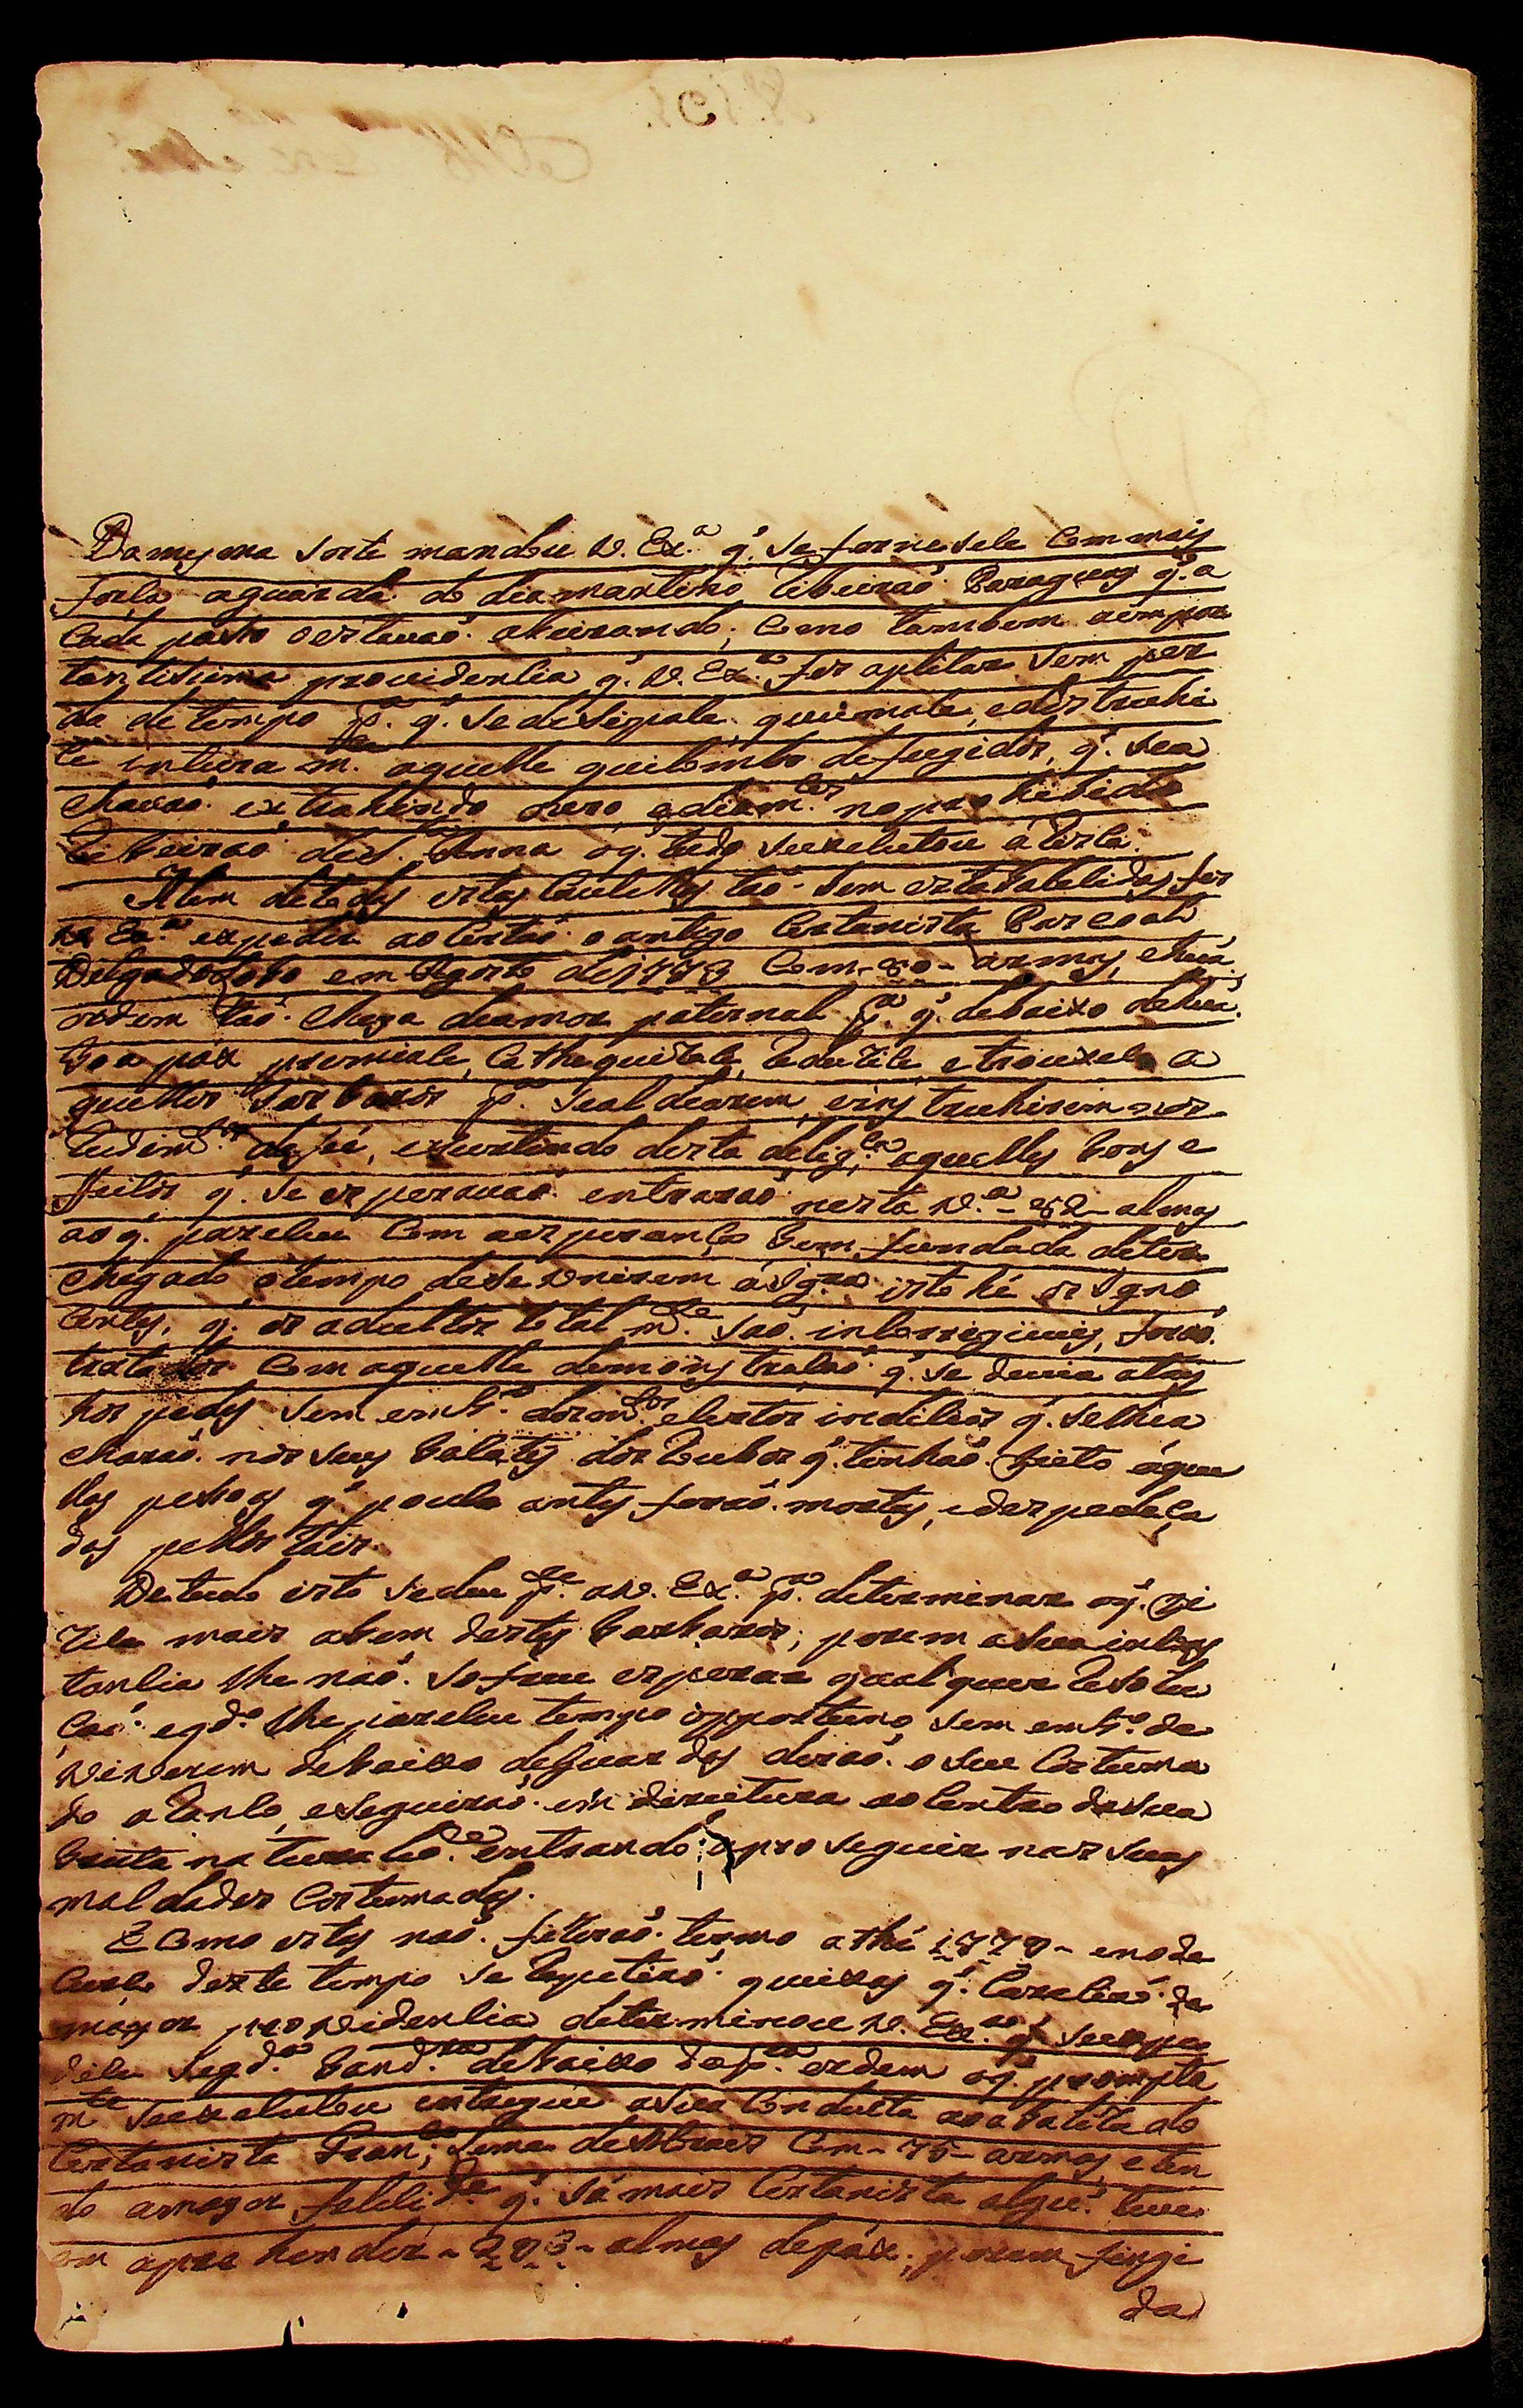 Da mesma sorte mandou V. Ex.ª q̃. se fornecese com mais
força aguarda do diamantino Ribeiraõ Paraguay q̃. a
cada passo o estavaõ atacando; como tambem aimpor
tantissima providencia q̃. V. Ex.ª fes aplicar sem per
da de tempo p.ª q̃. se desipase, queimase, edistruhi
se inteira m.te aquelle quilombo defugidos, q̃. sea
chavaõ extrahindo ouro, ediam.tes no prohibido
Ribeiraõ deS. Anna oq̃. tudo seexecutou á risca.
Alem detodas estas cautellas taõ bem estabalecidas fes
V. Ex.ª expedir aoCertaõ o antigo Certanista Pascoal
Delgado Lobo em Agosto de 1773 Com-80-armas, e hua
ordem taõ chega deamor paternal p.ª q̃. debaixo dehua
boa pax premiase, Cathequizase, Reduzise, etrouxese a
quelles barbaros p.ª sealdearem, einstruhirem nos
Rudim.tos dafé, eresurtindo desta delig.ca aquelles bons e
ffeitos q̃. se esperavaõ entraraõ nesta V.ª-82-almas
aoq̃. pareceu com aesperança bem fundada deter
chegado otempo dese unirem áIgr.ª isto hé os Igno
centes, q̃. os adultos total m.te saõ incorrigiveis, foraõ
tratados com aquella demonstraçaõ q̃. se devia atais
hospedes sem emb.º dosm.tos, ecertos indicios q̃. selhea
charaõ nos seus balaites dos Roubos q̃. tinhaõ feito áque
llas pessoas q̃. pouco antes foraõ mortas, edespedaça
das pellos tais.
Detudo isto sedeu p.te aV. Ex.ª p.ª determinar oq̃. fi
zese mais abem destes barbaros; porem asua incons
tancia lhe naõ sofreu esperar qualquer Resolu
çaõ eqd.º lhe pareceu tempo opportuno, sem emb.º de
viverem debaixo deGuardas deraõ o seu costuma
do aRanco, eseguiraõ em direitura aoCentro dasua
bruta naturalid.e entrando aproseguir nas suas
maldades costumadas.
E como estes naõ fizeraõ termo athé 1779- enode
curso deste tempo se Repetiraõ queixas q̃. Careciaõ de
mayor providencia determinou V. Ex.ª q̃ seexpe
dise segd.ª band.ra debaixo dap.ra ordem oq̃. prompta
m.te seexecutou entregue asua conducta aoabalizado
Certanista Fran.co Leme deMoraes Com-75-armas, eten
do amayor felecid.e q̃. já mais Certanista algu͂ teve
em aprehender-203-almas depáx; porem fingi
da